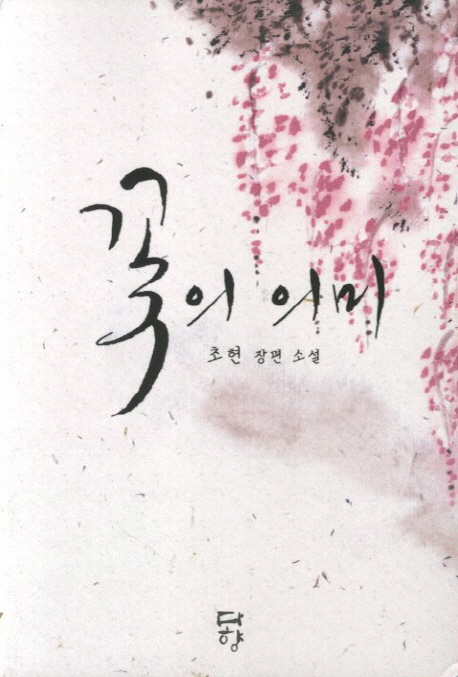 꽃의 의미
초현 장편 소설
다향